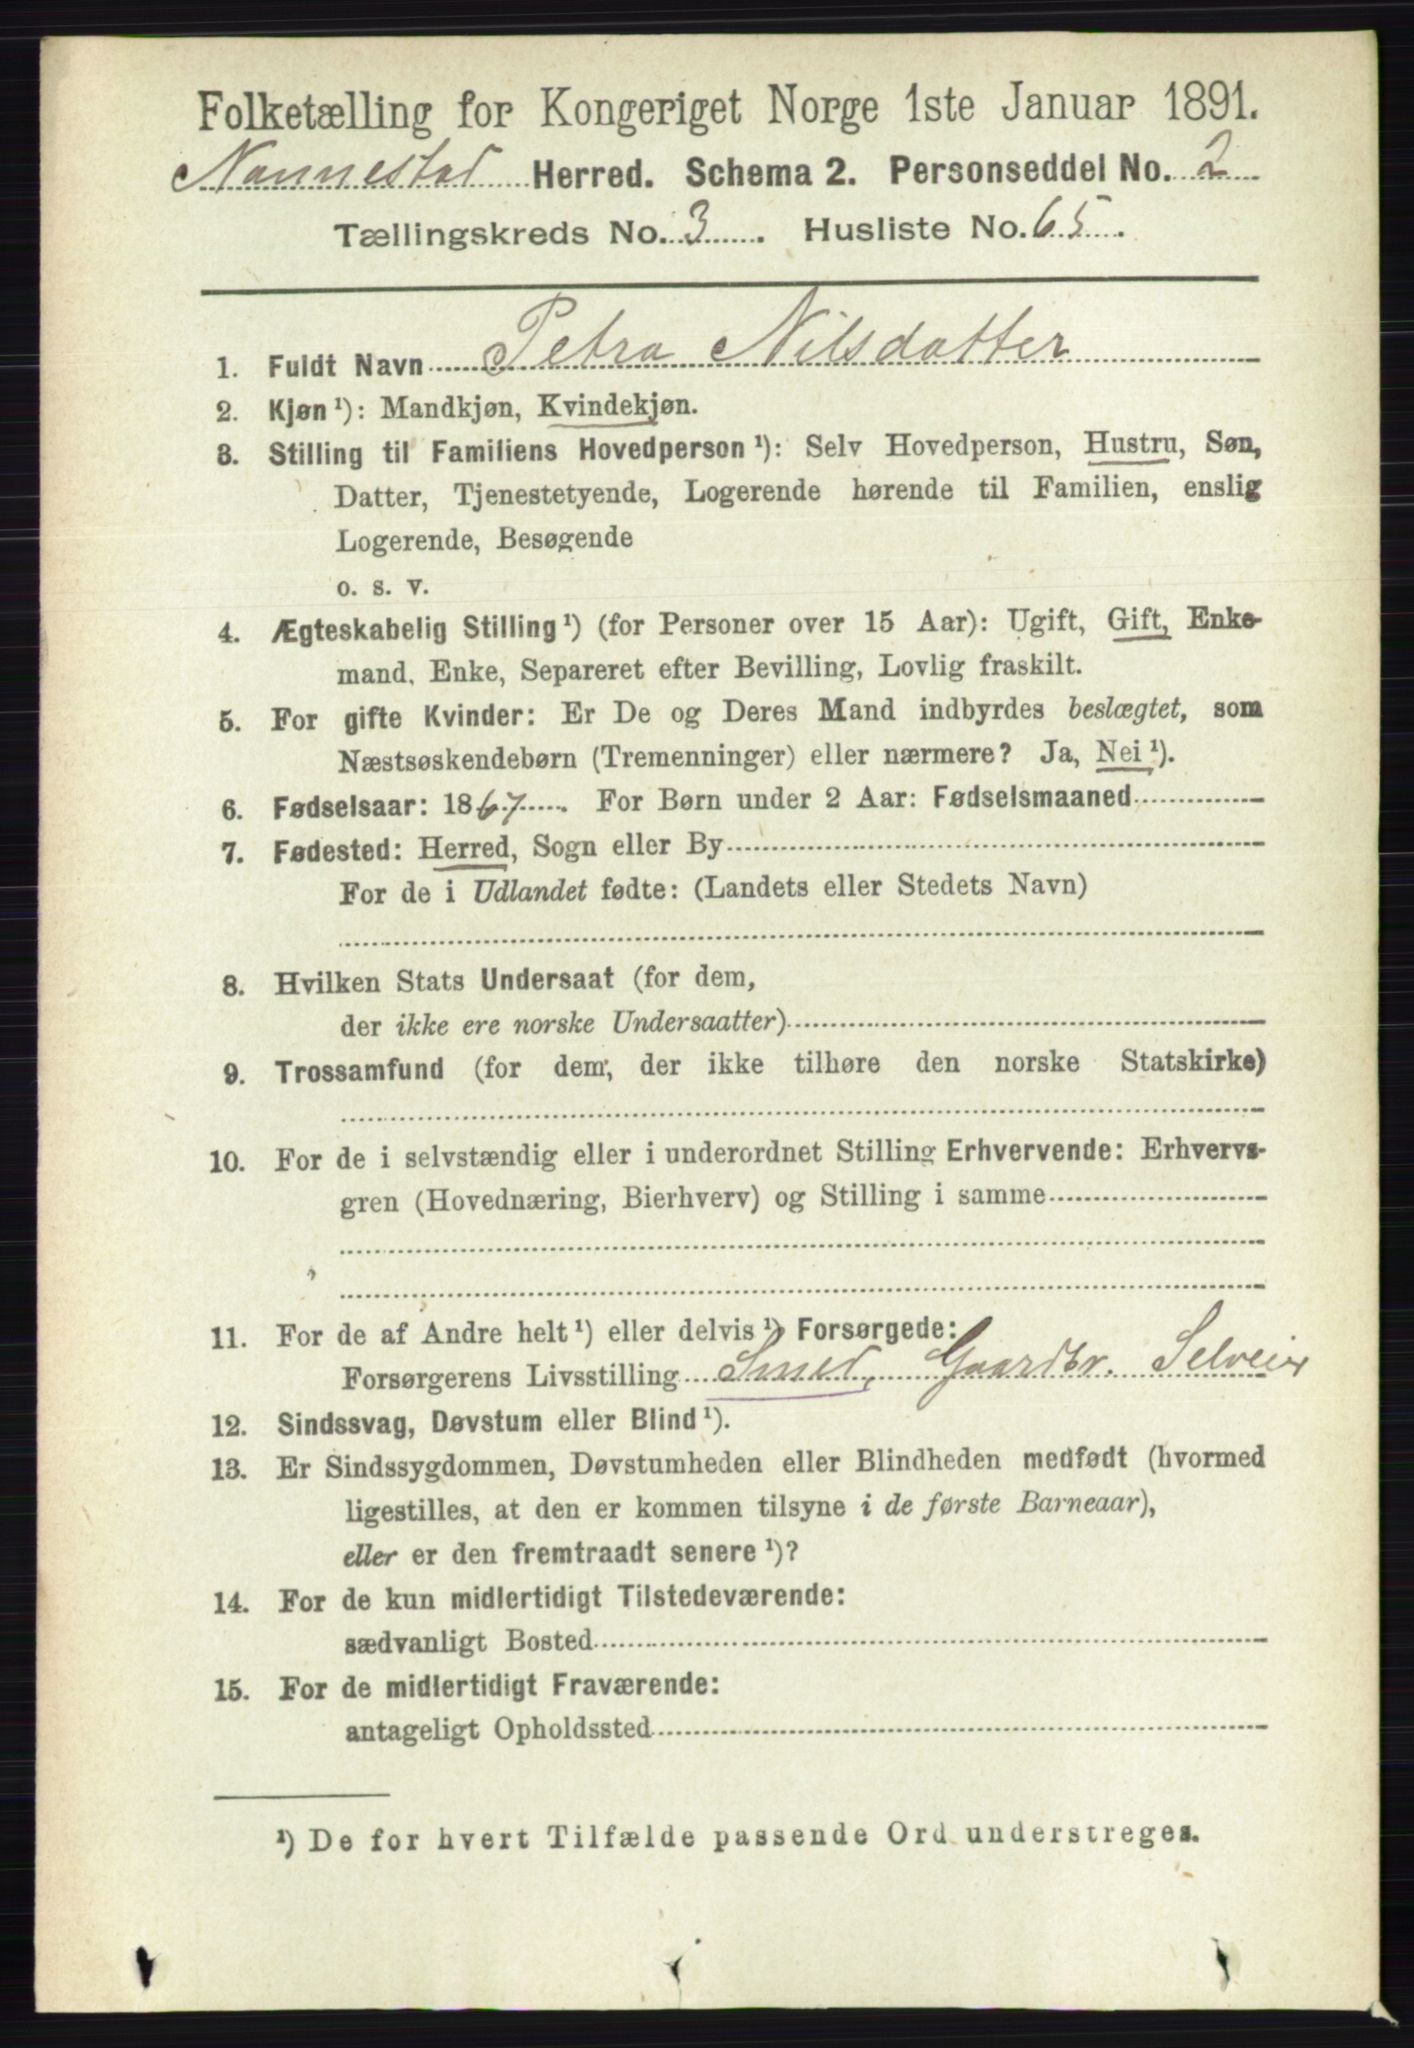 Folketælling for Kongeriget Norge 1ste Januar 1891.
Nannestad Herred. Schema 2. Personseddel No. 2
Tællingskreds No. 3. Husliste No. 65.
1. Fuldt Navn Petra Nilsdatter
2. Kjøn ¹): Mandkjøn, Kvindekjøn.
3. Stilling til Familiens Hovedperson ¹): Selv Hovedperson, Hustru, Søn,
Datter, Tjenestetyende, Logerende hørende til Familien, enslig
Logerende, Besøgende
o. s. v.
4. Ægteskabelig Stilling ¹) (for Personer over 15 Aar): Ugift, Gift, Enke-
mand, Enke, Separeret efter Bevilling, Lovlig fraskilt.
5. For gifte Kvinder: Er De og Deres Mand indbyrdes beslægtet, som
Næstsøskendebørn (Tremenninger) eller nærmere? Ja, Nei ¹).
6. Fødselsaar: 1867. For Børn under 2 Aar: Fødselsmaaned
7. Fødested: Herred, Sogn eller By
For de i Udlandet fødte: (Landets eller Stedets Navn)
8. Hvilken Stats Undersaat (for dem,
der ikke ere norske Undersaatter)
9. Trossamfund (for dem, der ikke tilhøre den norske Statskirke)
10. For de i selvstændig eller i underordnet Stilling Erhvervende: Erhvervs-
gren (Hovednæring, Bierhverv) og Stilling i samme
11. For de af Andre helt ¹) eller delvis ¹) Forsørgede:
Forsørgerens Livsstilling Smed, Gaardbr. Selveier
12. Sindssvag, Døvstum eller Blind ¹).
13. Er Sindssygdommen, Døvstumheden eller Blindheden medfødt (hvormed
ligestilles, at den er kommen tilsyne i de første Barneaar),
eller er den fremtraadt senere ¹)?
14. For de kun midlertidigt Tilstedeværende:
sædvanligt Bosted
15. For de midlertidigt Fraværende:
antageligt Opholdssted
¹) De for hvert Tilfælde passende Ord understreges.